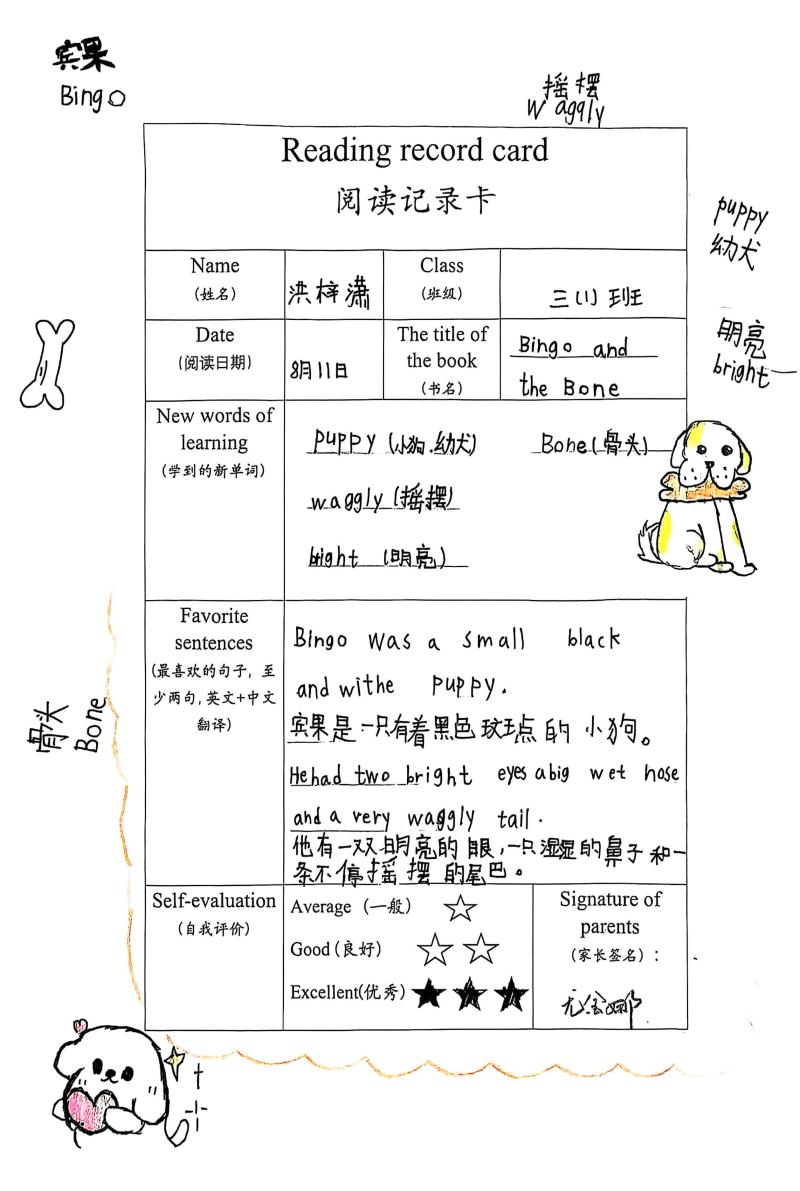 宾果
Bingo
摇摆
Waggly
Reading record card
阅读记录卡
puppy
幼犬
Name
(姓名)
洪梓潇
Class
(班级)
三(1)班
Date
(阅读日期)
8月11日
The title of
the book
(书名)
Bingo and
the Bone
明亮
bright
New words of
learning
(学到的新单词)
puppy (小狗.幼犬)
Bone(骨头)
waggly (摇摆)
bright (明亮)
Favorite
sentences
(最喜欢的句子, 至
少两句, 英文+中文
翻译)
Bingo was a small black
and withe puppy.
宾果是一只有着黑色玟点的小狗。
He had two bright eyes a big wet nose
and a very waggly tail.
他有一双明亮的眼,一只湿湿的鼻子和一
条不停摇摆的尾巴。
骨头
Bone
Self-evaluation
(自我评价)
Average (一般)
Good (良好)
Excellent(优秀)
Signature of
parents
(家长签名) :